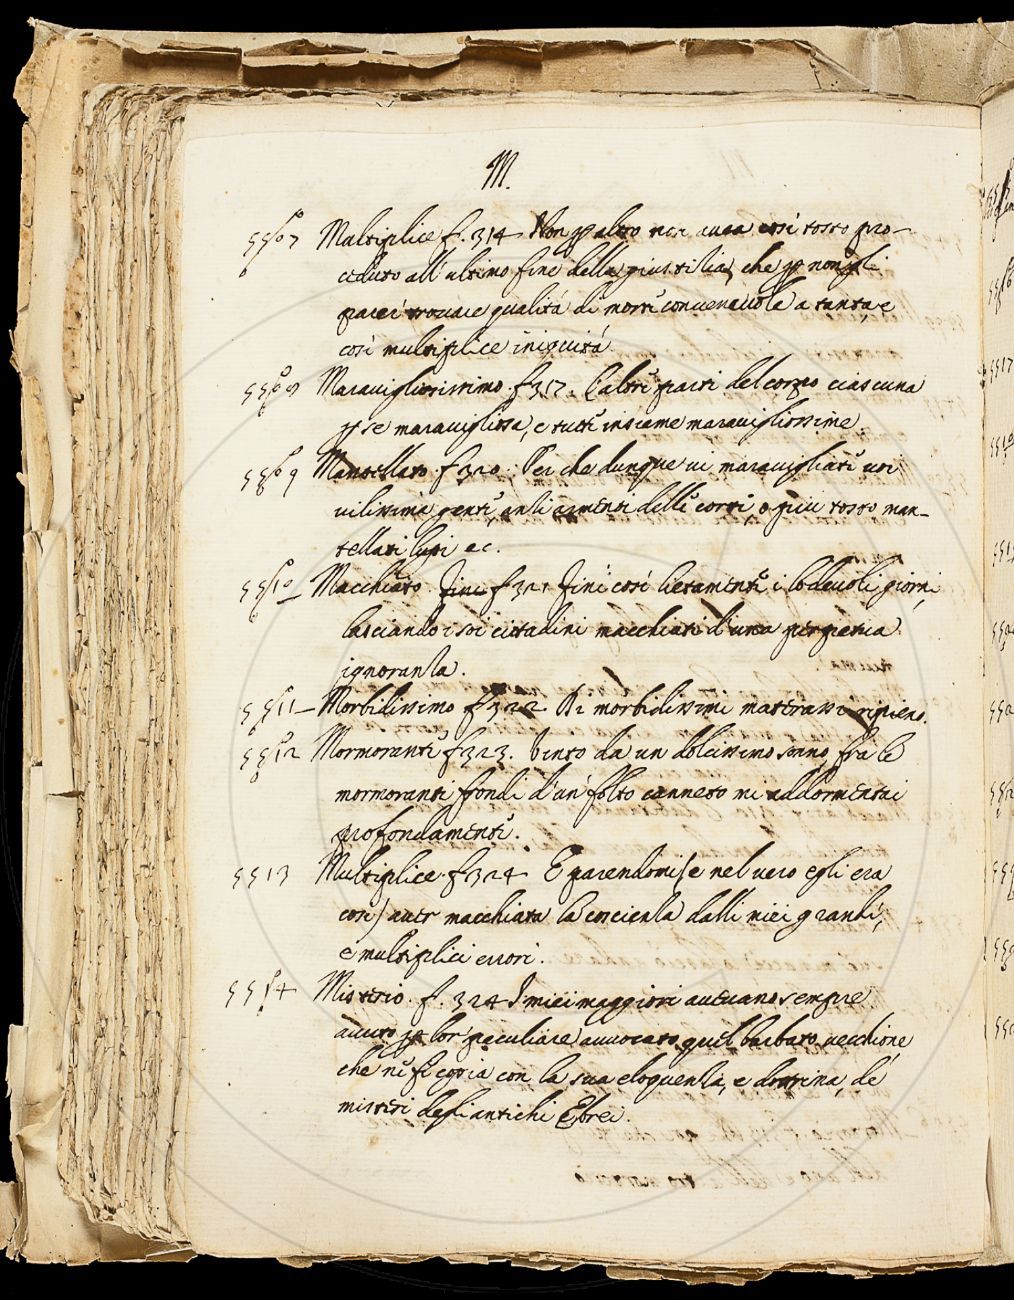 M.
5507 Multiplice f. 314 Non p altro non avea così tosto pro-
ceduto all' ultimo fine della giustitia, che p non gli
parer trovare qualità di morte convenevole a tanta, e
così multiplice iniquità
5508 Maravigliosissimo f 317. L'altre parti del corpo ciascuna
p se maravigliosa, e tutte insieme maravigliosissime.
5509 Mantellato. f 320. Per che dunque vi maravigliate voi
vilissima gente, anzi armenti delle corti, o più tosto man-
tellati lupi ec.
5510 Macchiato. f 321 Finì così lietamente i lodevoli giorni,
lasciando i soi cittadini macchiati d'una perpetua
ignoranza.
5511 Morbidissimo f 322. Di morbidissimi materassi ripieno.
5512 Mormorante f 323. Vinto da un dolcissimo sonno, fra le
mormoranti frondi d'un folto canneto mi addormentai
profondamente.
5513 Multiplice. f 324 E parendomi (e nel vero egli era
così) aver macchiata la coscienza dalli miei grandi,
e multiplici errori.
5514 Misterio. f. 324 I miei maggiori avevano sempre
avuto p lor peculiare avvocato quel barbato vecchione
che con la sua eloquenza, e dottrina, de'
misteri degli antichi Ebrei.